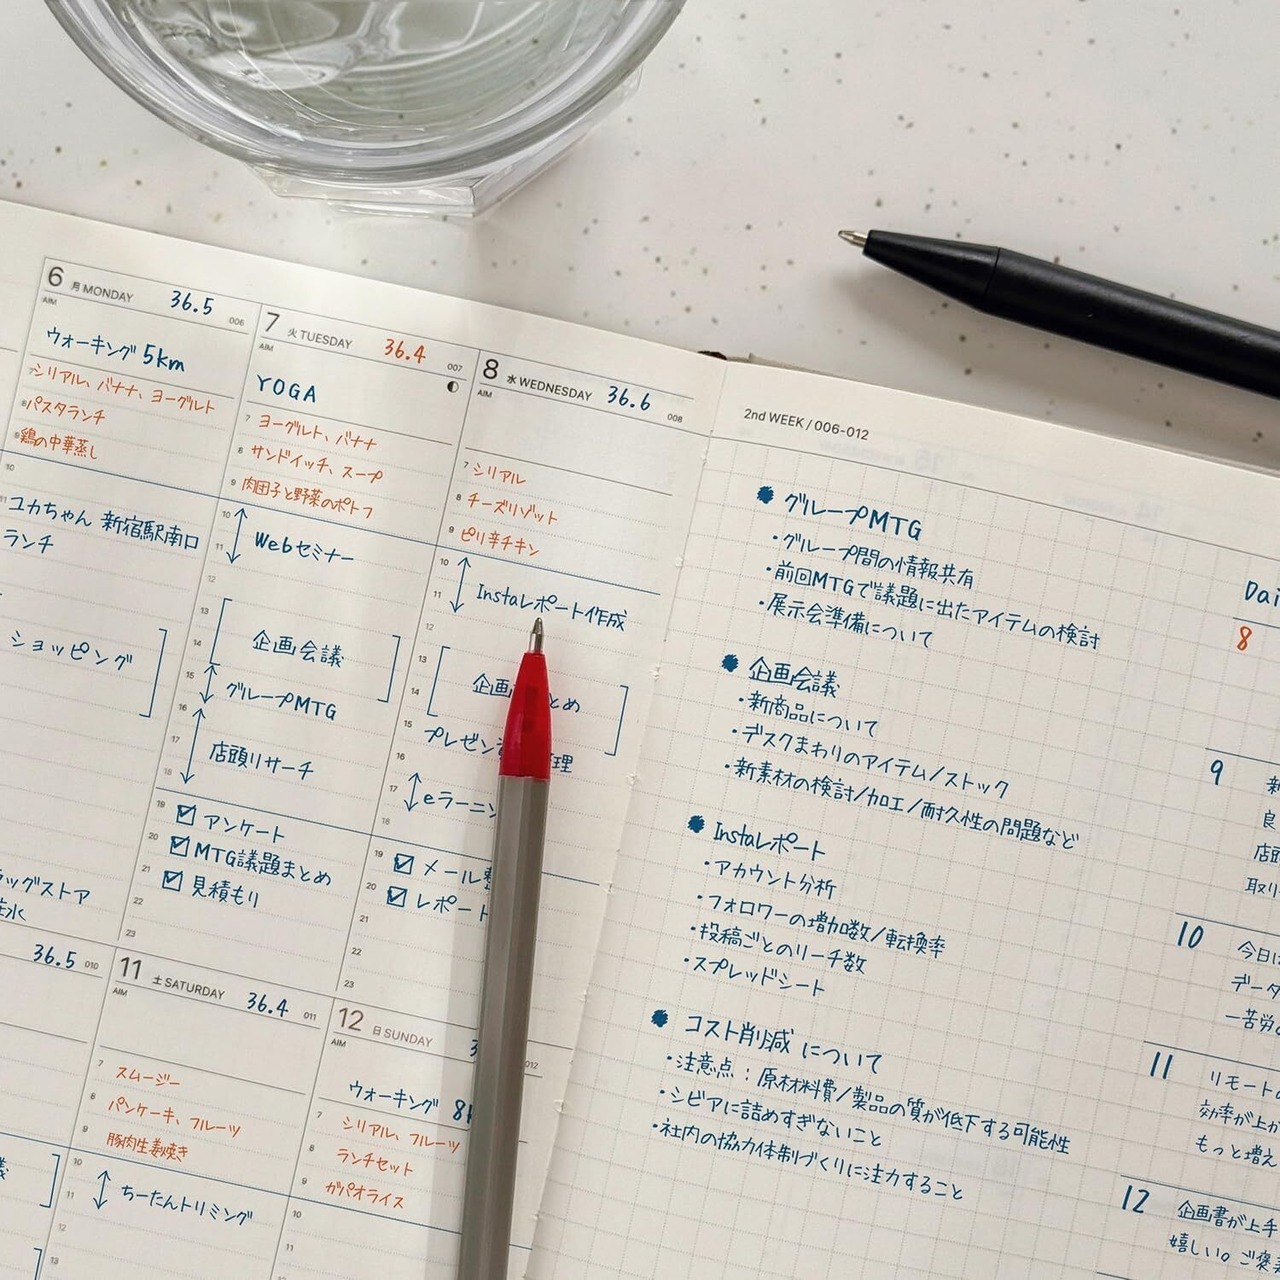 6 月 MONDAY 36.5
AIM 006
ウォーキング 5km
7 シリアル、バナナ、ヨーグルト
8 パスタランチ
9 鶏の中華蒸し
10
11 ユカちゃん 新宿駅南口
ランチ
ショッピング
ラッグストア
7 火 TUESDAY 36.4
AIM 007
YOGA
7 ヨーグルト、バナナ
8 サンドイッチ、スープ
9 肉団子と野菜のポトフ
10
11 Webセミナー
12
13
14 企画会議
15
グループMTG
16
17 店頭リサーチ
18
19 アンケート
20 MTG議題まとめ
21 見積もり
22
23
8 水 WEDNESDAY 36.6
AIM 008
7 シリアル
8 チーズリゾット
9 ピリ辛チキン
10
11 Instaレポート作成
12
13
14 企画 とめ
15 プレゼン 理
16
17 eラーニン
18
19 メール
20 レポート
21
22
23
36.5 010
11 土 SATURDAY 36.4
AIM 011
7 スムージー
8 パンケーキ、フルーツ
9 豚肉生姜焼き
10
11 ちーたんトリミング
12
13
12 日 SUNDAY 3
AIM 012
ウォーキング 8k
7 シリアル、フルーツ
8 ランチセット
9 ガパオライス
10
11
2nd WEEK / 006-012
グループMTG
・グループ間の情報共有
・前回MTGで議題に出たアイテムの検討
・展示会準備について
企画会議
・新商品について
・デスクまわりのアイテム/ストック
・新素材の検討/加工/耐久性の問題など
Instaレポート
・アカウント分析
・フォロワーの増加数/転換率
・投稿ごとのリーチ数
・スプレッドシート
コスト削減 について
・注意点：原材料費/製品の質が低下する可能性
・シビアに詰めすぎないこと
・社内の協力体制づくりに注力すること
Dai
8
9 新
良
店頭
取り
10 今日は
データ
一苦労
11 リモートの
効率が上が
もっと増え
12 企画書が上手
嬉しい。ご褒美